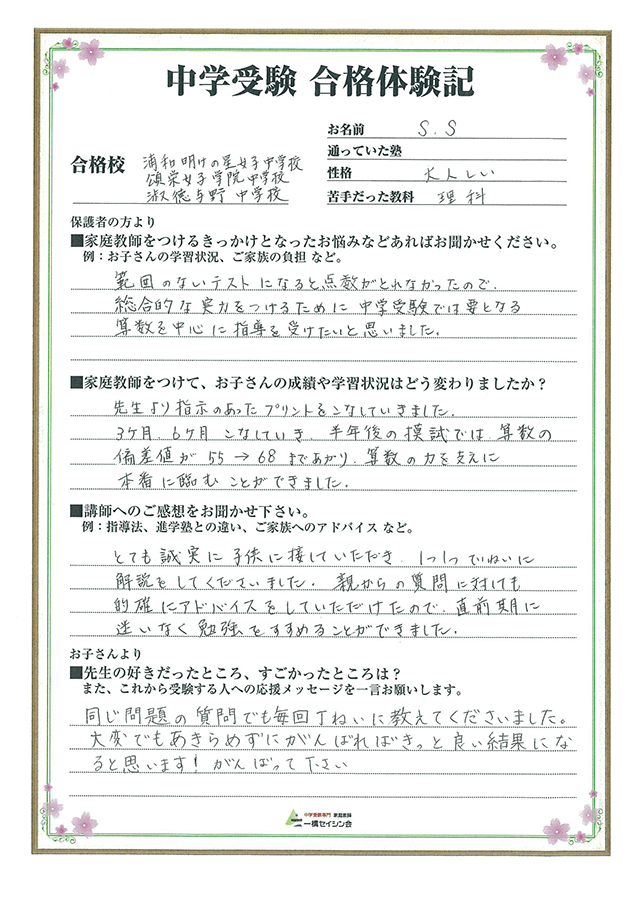 中学受験 合格体験記
お名前 S.S
通っていた塾
合格校 浦和明けの星女子中学校
頌栄女子学院中学校
淑徳与野中学校
性格 大人しい
苦手だった教科 理科
保護者の方より
■家庭教師をつけるきっかけとなったお悩みなどあればお聞かせください。
例：お子さんの学習状況、ご家族の負担 など。
範囲のないテストになると点数がとれなかったので、
総合的な実力をつけるために中学受験では要となる
算数を中心に指導を受けたいと思いました。
■家庭教師をつけて、お子さんの成績や学習状況はどう変わりましたか？
先生より指示のあったプリントをこなしていきました。
3ヶ月、6ヶ月こなしていき、半年後の模試では、算数の
偏差値が55→68まであがり、算数の力を支えに
本番に臨むことができました。
■講師へのご感想をお聞かせ下さい。
例：指導法、進学塾との違い、ご家族へのアドバイス など。
とても誠実に子供に接していただき、1つ1つていねいに
解説をしてくださいました。親からの質問に対しても
的確にアドバイスをしていただけたので、直前期に
迷いなく勉強をすすめることができました。
お子さんより
■先生の好きだったところ、すごかったところは？
また、これから受験する人への応援メッセージを一言お願いします。
同じ問題の質問でも毎回丁ねいに教えてくださいました。
大変でもあきらめずにがんばればきっと良い結果にな
ると思います！がんばって下さい
中学受験専門 家庭教師
一橋セイシン会